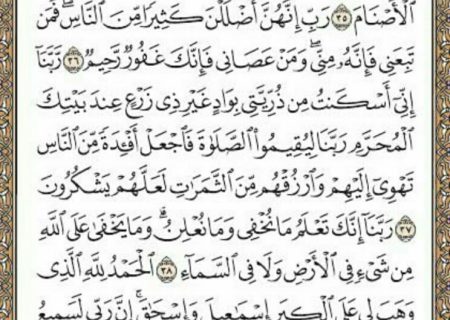 ٱلۡأَصۡنَامَ ٣٥ رَبِّ إِنَّهُنَّ أَضۡلَلۡنَ كَثِيرٗا مِّنَ ٱلنَّاسِۖ فَمَن
تَبِعَنِي فَإِنَّهُۥ مِنِّيۖ وَمَنۡ عَصَانِي فَإِنَّكَ غَفُورٞ رَّحِيمٞ ٣٦ رَّبَّنَآ
إِنِّيٓ أَسۡكَنتُ مِن ذُرِّيَّتِي بِوَادٍ غَيۡرِ ذِي زَرۡعٍ عِندَ بَيۡتِكَ
ٱلۡمُحَرَّمِ رَبَّنَا لِيُقِيمُواْ ٱلصَّلَوٰةَ فَٱجۡعَلۡ أَفۡـِٔدَةٗ مِّنَ ٱلنَّاسِ
تَهۡوِيٓ إِلَيۡهِمۡ وَٱرۡزُقۡهُم مِّنَ ٱلثَّمَرَٰتِ لَعَلَّهُمۡ يَشۡكُرُونَ
٣٧ رَبَّنَآ إِنَّكَ تَعۡلَمُ مَا نُخۡفِي وَمَا نُعۡلِنُۗ وَمَا يَخۡفَىٰ عَلَى ٱللَّهِ
مِن شَيۡءٖ فِي ٱلۡأَرۡضِ وَلَا فِي ٱلسَّمَآءِ ٣٨ ٱلۡحَمۡدُ لِلَّهِ ٱلَّذِي
وَهَبَ لِي عَلَى ٱلۡكِبَرِ إِسۡمَٰعِيلَ وَإِسۡحَٰقَۚ إِنَّ رَبِّي لَسَمِيعُ